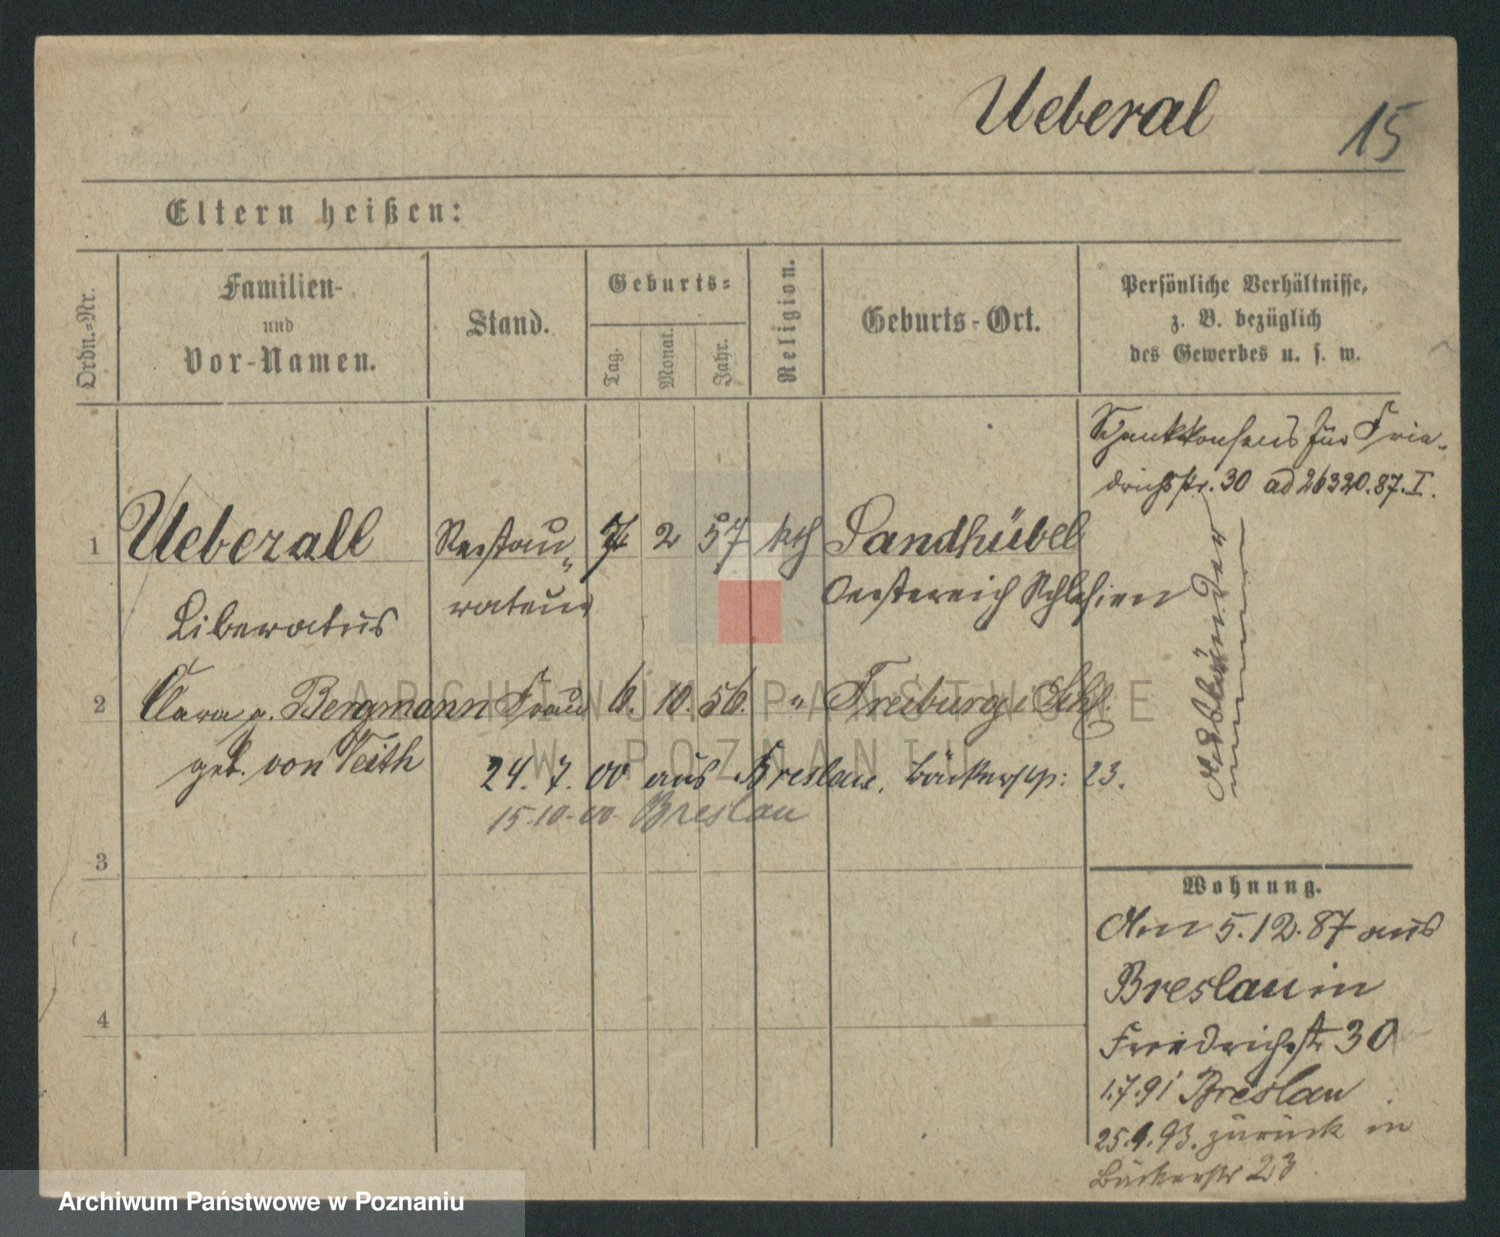 Ueberal 15
Eltern heißen:
Ordn.-Nr.
Familien-
und
Vor-Namen.
Stand.
Geburts-
Tag.
Monat.
Jahr.
Religion.
Geburts-Ort.
Persönliche Verhältnisse,
z. B. bezüglich
des Gewerbes u. s. w.
Schankkonsens für Frie-
drichstr. 30 ad 26320.87.I.
1 Ueberall Restau- 7 2 57 kth Sandhübel
Liberatus rateur Oesterreich Schlesien
Ausländer
2 Clara g. Bergmann Frau 6. 10. 56. " Freiburg i Schl.
geb. von Veith 24. 7. 00 aus Breslau, Bäckerstr: 23.
15.10.00. Breslau
3
4
Wohnung.
Am 5.12.87 aus
Breslau in
Friedrichstr 30
1.7.91 Breslau
25.9.93. zurück in
Bäckerstr 23
ARCHIWUM PAŃSTWOWE
W POZNANIU
Archiwum Państwowe w Poznaniu